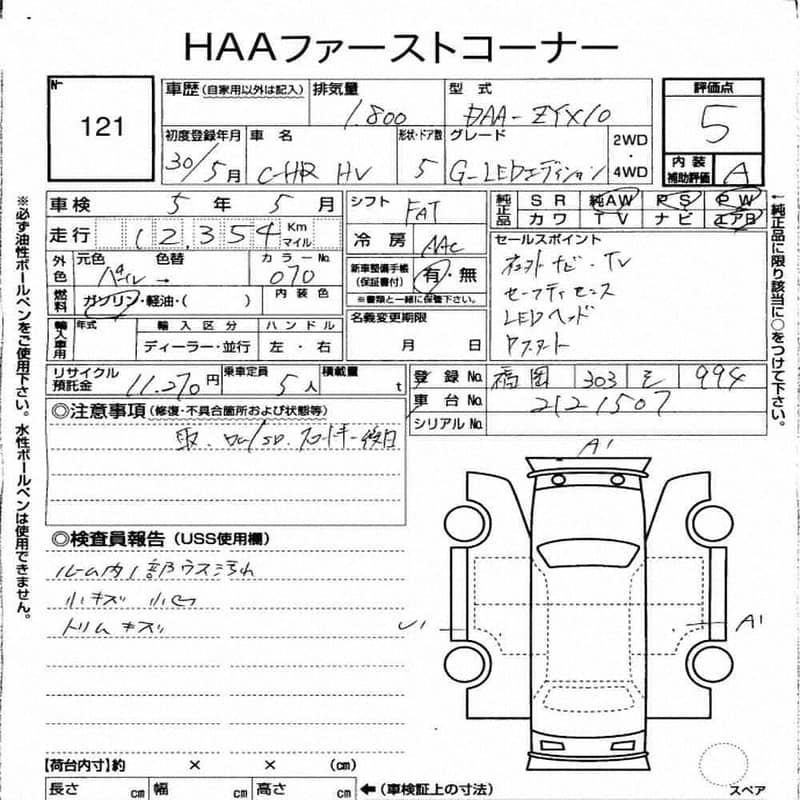 HAAファーストコーナー
№ 121
車歴 (自家用以外は記入) 排気量 1.800 型式 DAA-ZYX10 評価点 5
初度登録年月 30/5月 車名 C-HR HV 形状・ドア数 5 グレード G-LEDエディション 2WD・4WD 内装補助評価 A
車検 5年 5月 シフト FAT 純正品 SR 純AW PS PW
走行 12,354 Km マイル 冷房 AAC カワ TV ナビ エアB
外色 元色 パール 色替 → カラーNo. 070 新車整備手帳(保証書付) 有・無 ※書類と一緒に保管下さい。
燃料 ガソリン・軽油・( ) 内装色
輸入車用 年式 輸入区分 ディーラー・並行 ハンドル 左・右 名義変更期限 月 日
セールスポイント
ナビ・TV
セーフティセンス
LEDヘッド
リサイクル預託金 11.270円 乗車定員 5人 積載量 t 登録No. 福岡 303 そ 994
車台No. 2121507
シリアルNo.
◎注意事項 (修復・不具合箇所および状態等)
取・
後日
◎検査員報告 (USS使用欄)
ルーム内1部ウス汚れ
小キズ 小凹
トリムキズ
A1
U1
A1
【荷台内寸】約 × × (cm)
長さ cm 幅 cm 高さ cm ←(車検証上の寸法)
スペア
※必ず油性ボールペンをご使用下さい。水性ボールペンは使用できません。
←純正品に限り該当に○をつけて下さい。